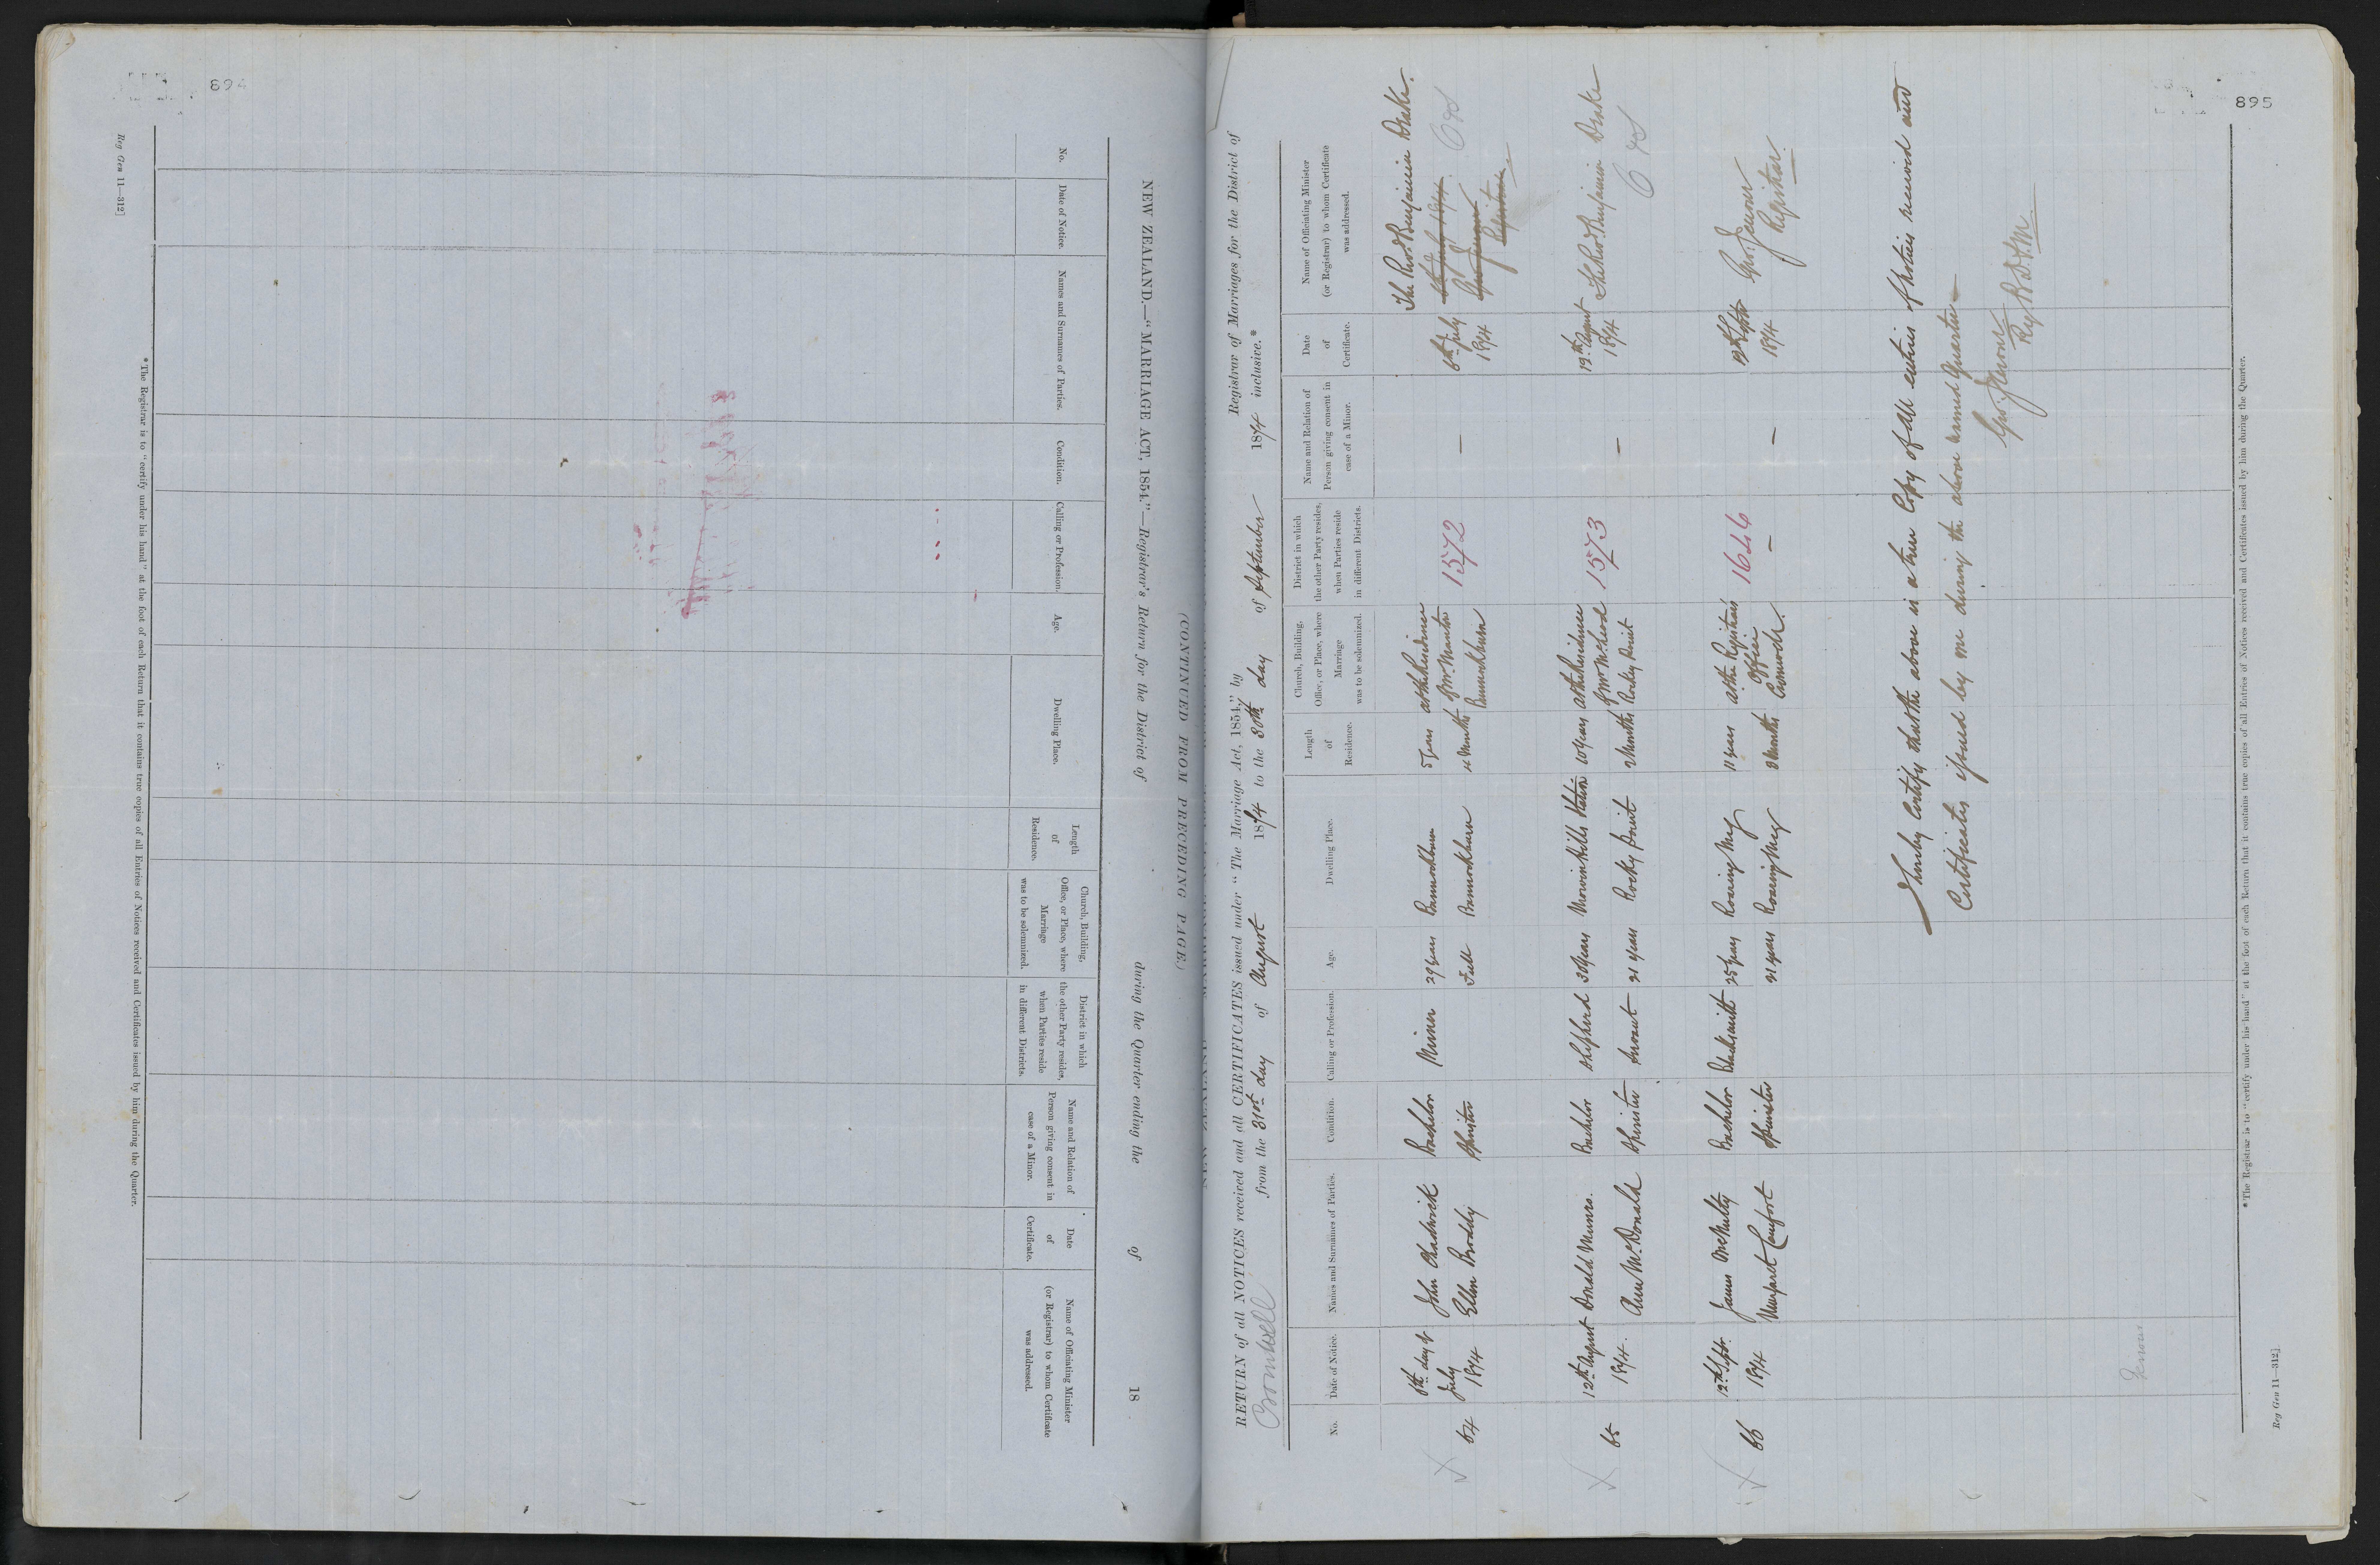 894
Reg Gen 11—312]
(CONTINUED FROM PRECEDING PAGE.)
NEW ZEALAND.—"MARRIAGE ACT, 1854."—Registrar's Return for the District of during the Quarter ending the of 18
No.
Date of Notice.
Names and Surnames of Parties.
Condition.
Calling or Profession.
Age.
Dwelling Place.
Length
of
Residence.
Church, Building,
Office, or Place, where
Marriage
was to be solemnized.
District in which
the other Party resides,
when Parties reside
in different Districts.
Name and Relation of
Person giving consent in
case of a Minor.
Date
of
Certificate.
Name of Officiating Minister
(or Registrar) to whom Certificate
was addressed.
* The Registrar is to "certify under his hand" at the foot of each Return that it contains true copies of all Entries of Notices received and Certificates issued by him during the Quarter.
895
RETURN of all NOTICES received and all CERTIFICATES issued under "The Marriage Act, 1854," by Registrar of Marriages for the District of
Cromwell from the 31st day of August 1874 to the 30th day of September 1874 inclusive.*
No.
Date of Notice.
Names and Surnames of Parties.
Condition.
Calling or Profession.
Age.
Dwelling Place.
Length
of
Residence.
Church, Building,
Office, or Place, where
Marriage
was to be solemnized.
District in which
the other Party resides,
when Parties reside
in different Districts.
Name and Relation of
Person giving consent in
case of a Minor.
Date
of
Certificate.
Name of Officiating Minister
(or Registrar) to whom Certificate
was addressed.
64
6th day of
July
1874
John Chadwick
Ellen Broddy
Bachelor
Spinster
Miner
29 years
Full
Bannockburn
Bannockburn
5 years
4 Months
at the Residence
of Mr. Manton
Bannockburn
1572
—
6th July
1874
The Revd. Benjamin Drake.
6th July 1874
Geo Jenour
Registrar
65
12th August
1874.
Donald Munro.
Ann McDonald
Bachelor
Spinster
Shepherd
Servant
30 years
21 years
Morven Hills Station
Rocky Point
10 years
2 Months
at the Residence
of Mr McLeod
Rocky Point
1573
—
19th August
1874
The Revd. Benjamin Drake
66
12th Septr.
1874
James McNulty
Margaret Comfort
Bachelor
Spinster
Blacksmith
25 years
21 years
Roaring Meg
Roaring Meg
11 years
3 Months
at the Registrar's
Office
Cromwell.
1646
—
—
1874
Geo. Jenour
Registrar.
I hereby Certify that the above is a true Copy of all entries of notices received and
Certificates issued by me during the above named Quarter—
Geo. Jenour
Reg B.D.M
Jenour
* The Registrar is to "certify under his hand" at the foot of each Return that it contains true copies of all Entries of Notices received and Certificates issued by him during the Quarter.
Reg Gen 11—312].